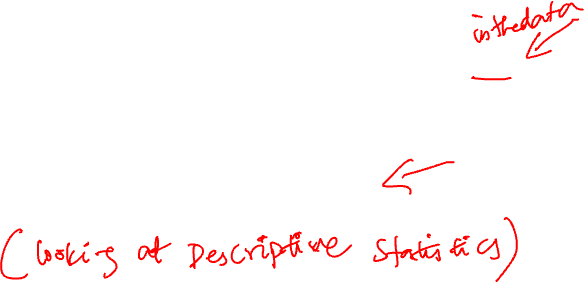 in the data
(looking at Descriptive Statistics)